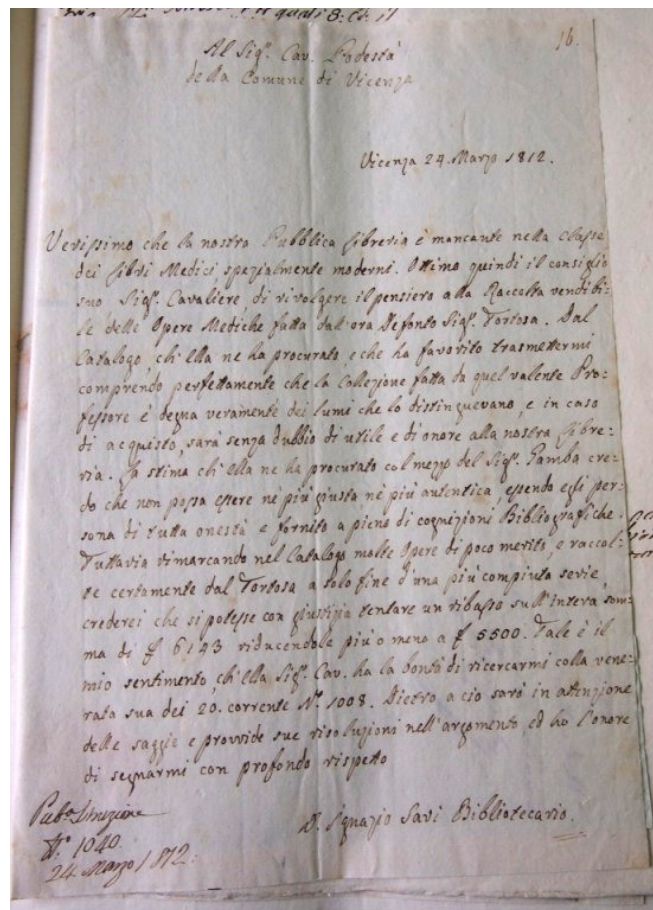 quali 8: Ct: il
16.
Al Sigr. Cav. Podestà
della Comune di Vicenza
Vicenza 24. Marzo 1812.
Verissimo che la nostra Pubblica Libreria è mancante nella Classe
dei Libri Medici spezialmente moderni. Ottimo quindi il consiglio
suo Sigr. Cavaliere, di rivolgere il pensiero alla Raccolta vendibi:
le delle Opere Mediche fatta dal ora Defonto Sigr. Tortosa. Dal
Catalogo, ch'ella ne ha procurato, e che ha favorito trasmettermi
comprendo perfettamente che la Collezione fatta da quel valente Pro:
fessore è degna veramente dei lumi che lo distinguevano, e in caso
di acquisto, sarà senza dubbio di utile e di onore alla nostra Libre:
ria. La stima ch'ella ne ha procurato col mezzo del Sigr. Gamba cre:
do che non possa essere nè più giusta nè più autentica, essendo egli per:
sona di tutta onestà e fornito a pieno di cognizioni Bibliografiche.
Tuttavia rimarcando nel Catalogo molte Opere di poco merito, e raccol:
te certamente dal Tortosa a solo fine d'una più compiuta serie,
crederei che si potesse con giustizia tentare un ribasso sull'intera som:
ma di £ 6143 riducendole più o meno a £ 5500. Tale è il
mio sentimento, ch'ella Sigr. Cav. ha la bontà di ricercarmi colla vene:
rata sua dei 20. corrente N°. 1008. Dietro a ciò sarò in attenzione
delle saggie e provvide sue risoluzioni nell'argomento, ed ho l'onore
di segnarmi con profondo rispetto
D. Ignazio Savi Bibliotecario.
Puba Istruzione
N° 1040
24 Marzo 1812: